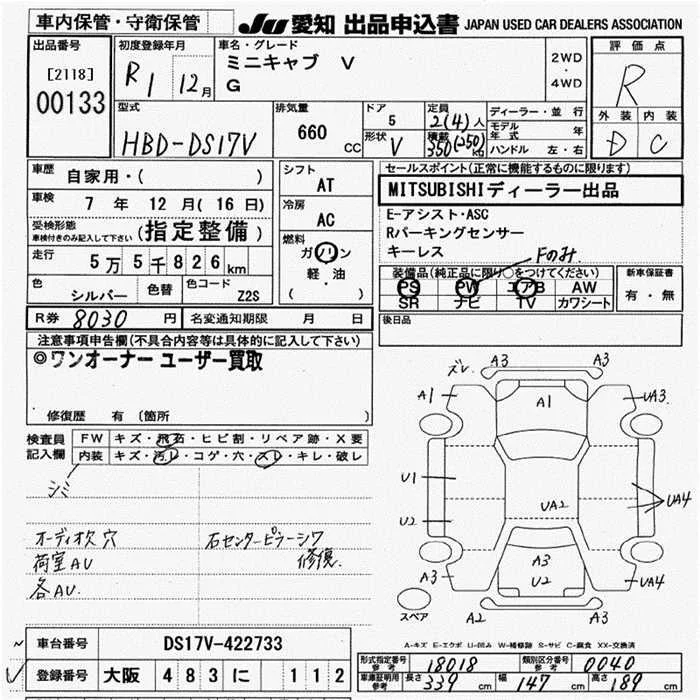 車内保管・守衛保管
JU 愛知 出品申込書 JAPAN USED CAR DEALERS ASSOCIATION
出品番号
[2118]
00133
初度登録年月
R1 12月
車名・グレード
ミニキャブ V
G
2WD
・
4WD
評価点
R
外装 内装
D C
型式
HBD-DS17V
排気量
660 CC
ドア
5
形状
V
定員
2(4)人
積載
350(250)kg
ディーラー・並行
モデル年式 年
ハンドル 左・右
車歴 自家用・( )
車検 7年 12月(16日)
受検形態
車検付きのみ記入して下さい (指定整備)
走行 5万5千826km
色 シルバー 色替 色コード Z2S
シフト
AT
冷房
AC
燃料
ガソリン
軽・油
( )
セールスポイント(正常に機能するものに限ります)
MITSUBISHIディーラー出品
E-アシスト・ASC
Rパーキングセンサー
キーレス
Fのみ.
装備品(純正品に限り○をつけてください)
PS PW エアB AW
SR ナビ TV カワシート
新車保証書
有・無
R券 8030円 名変通知期限 月 日
後日品
注意事項申告欄(不具合内容等は具体的に記入して下さい)
◎ワンオーナー ユーザー買取
修復歴 有(箇所 )
検査員
記入欄
FW キズ・飛石・ヒビ割・リペア跡・X要
内装 キズ・汚レ・コゲ・穴・スレ・キレ・破レ
シミ
オーディオ次穴
荷室AU
各AU.
右センターピラーシワ
修復.
ズレ A3 A3
A1 A1 UA3
U1 UA2 UA4
U2
A3 A3 UA4
U2
A2 A3
スペア
A-キズ E-エクボ U-凹み W-補修跡 S-サビ C-腐食 XX-交換済
車台番号 DS17V-422733
登録番号 大阪 483に 112
形式指定番号
参考 18018
類別区分番号
参考 0040
車庫証明用
参考 長さ 339cm 幅 147cm 高さ 189cm